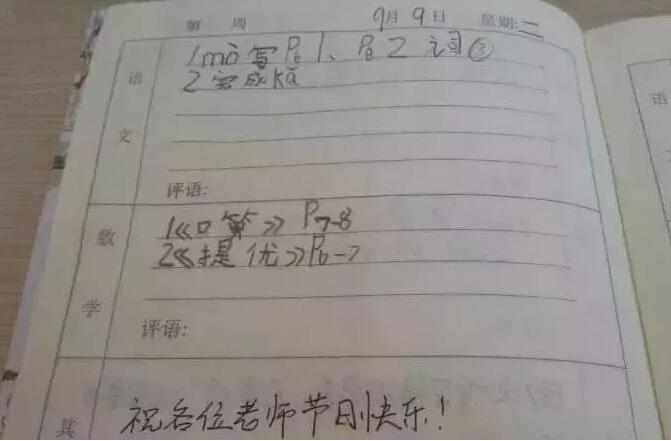 第 周 9月9日 星期:二
语文
1mò写P61、P82词②
2完成kǎ
评语:
数学
1《口算》P7-8
2《提优》P6-7
评语:
其
祝各位老师节日快乐!
语